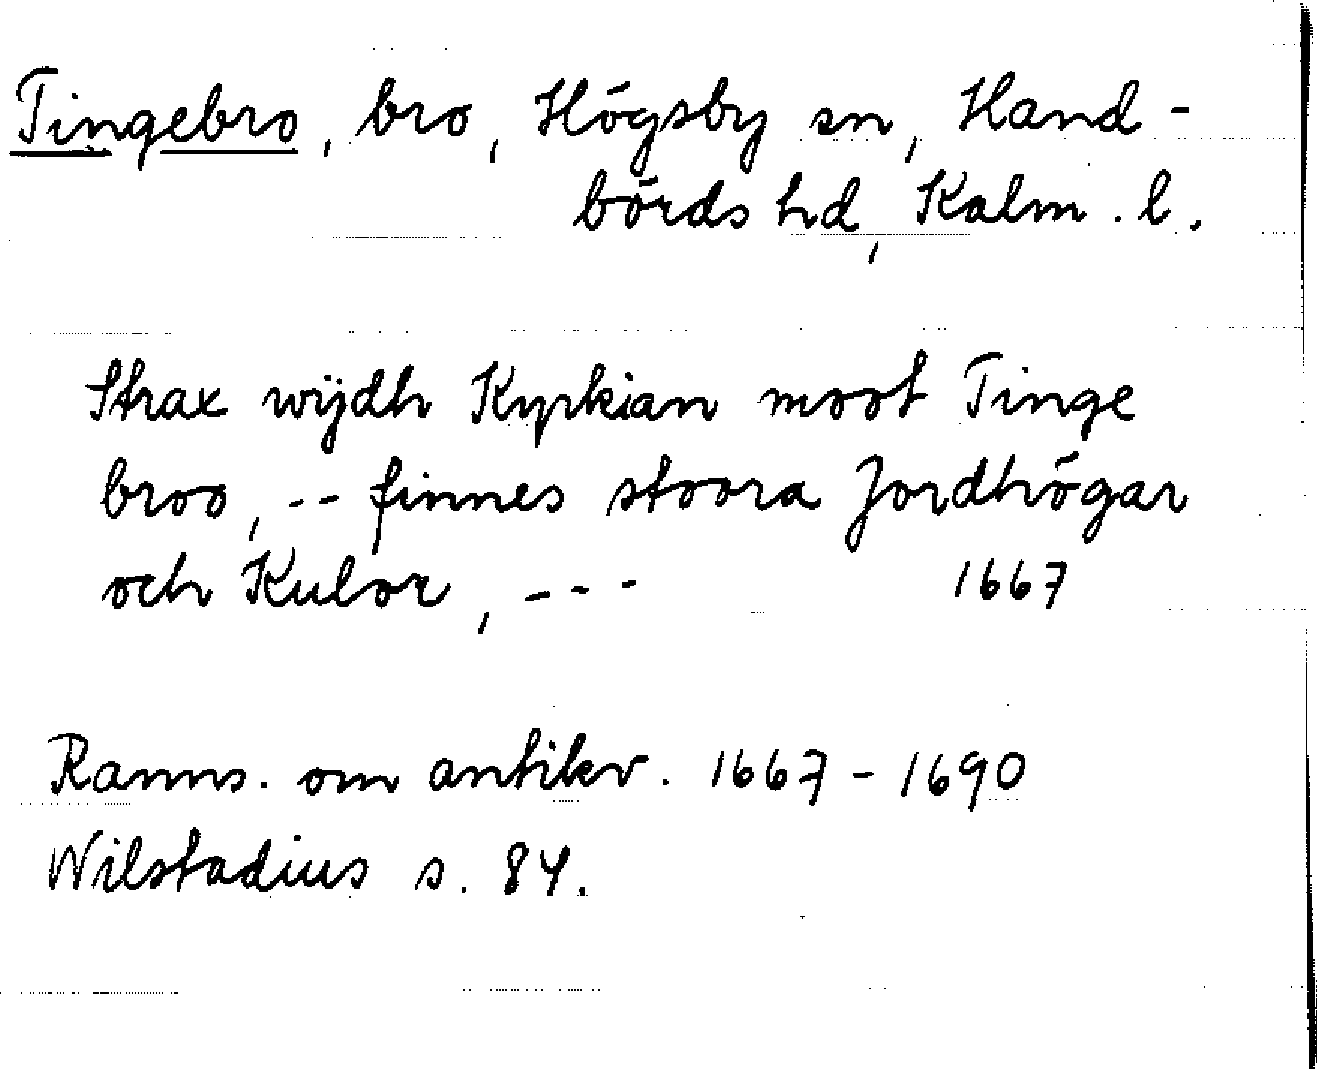 Tingebro, bro, Högsby sn, Hand-
börds hd, Kalm. l.
Strax wijdh Kyrkian moot Tinge
broo, -- finnes stoora Jordhögar
och Kulor, --- 1667
Ranns. om antikv. 1667-1690
Wilstadius s. 84.